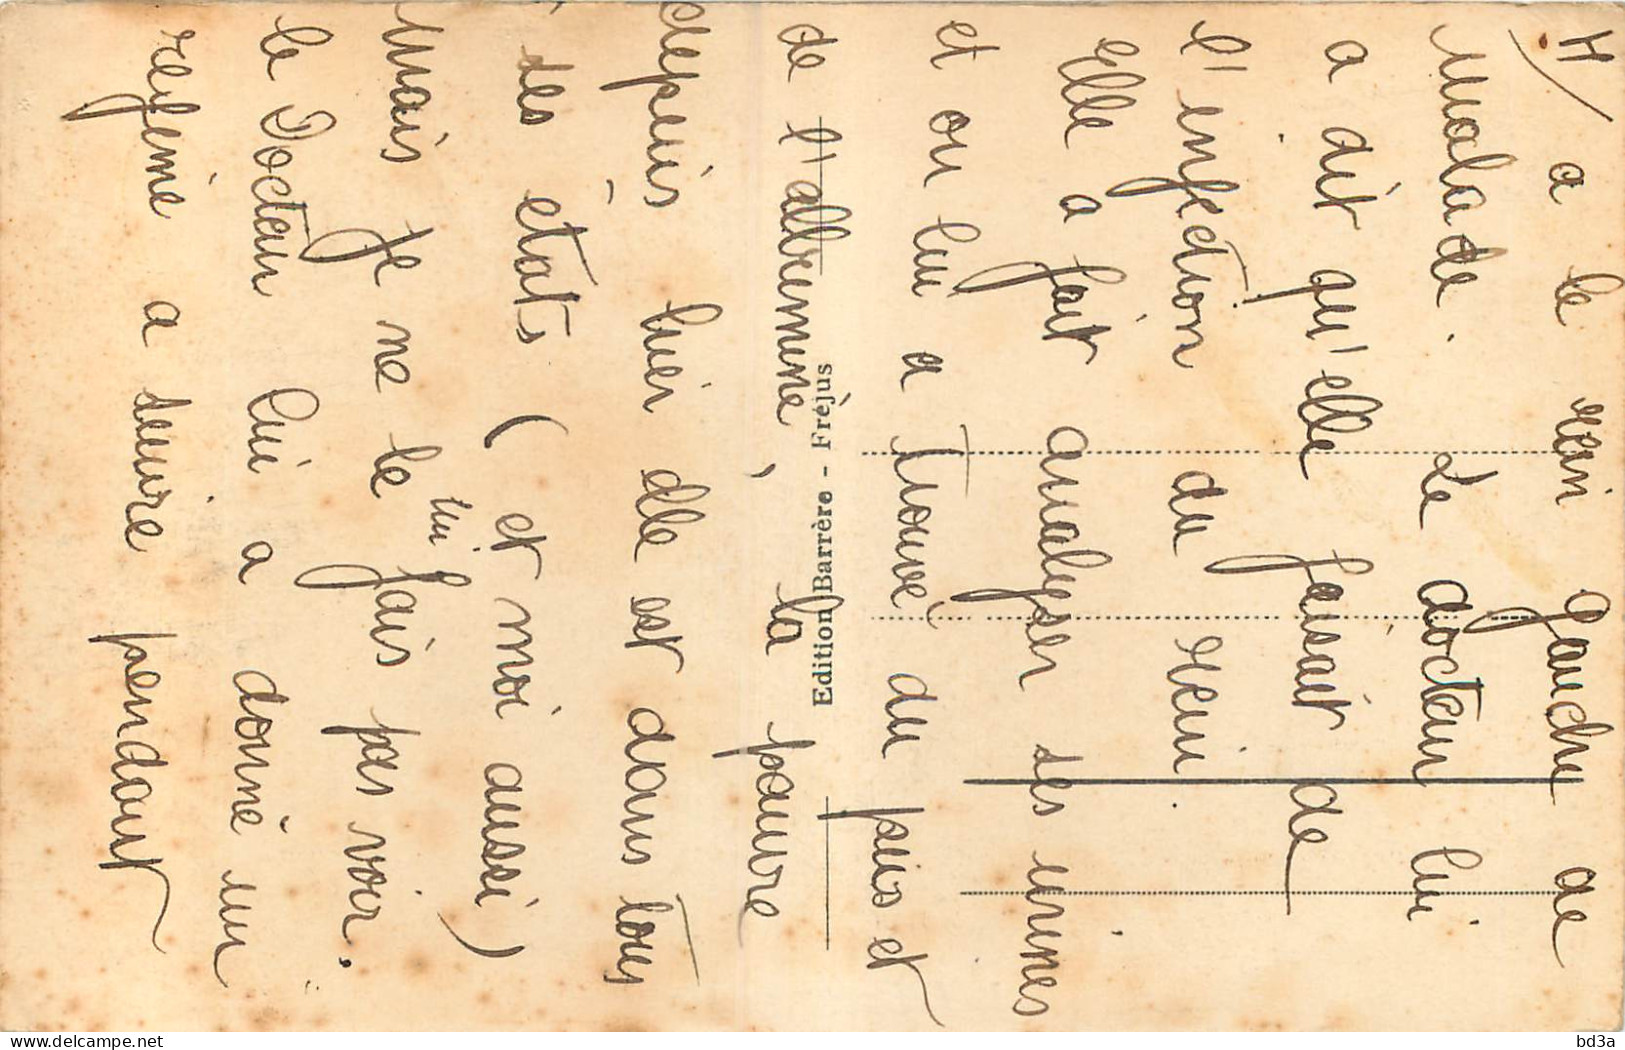 4/ a le rein gauche de
malade. Le docteur lui
a dit qu'elle faisait de
l'infection du rein.
Elle a fait analyser ses urines
et on lui a trouvé du pus et
de l'albumine, la pauvre
depuis hier elle est dans tous
ses états (et moi aussi)
Mais je ne le lui fais pas voir.
le Docteur lui a donné un
regime a suivre pendant
Edition Barrère - Fréjus
bd3a